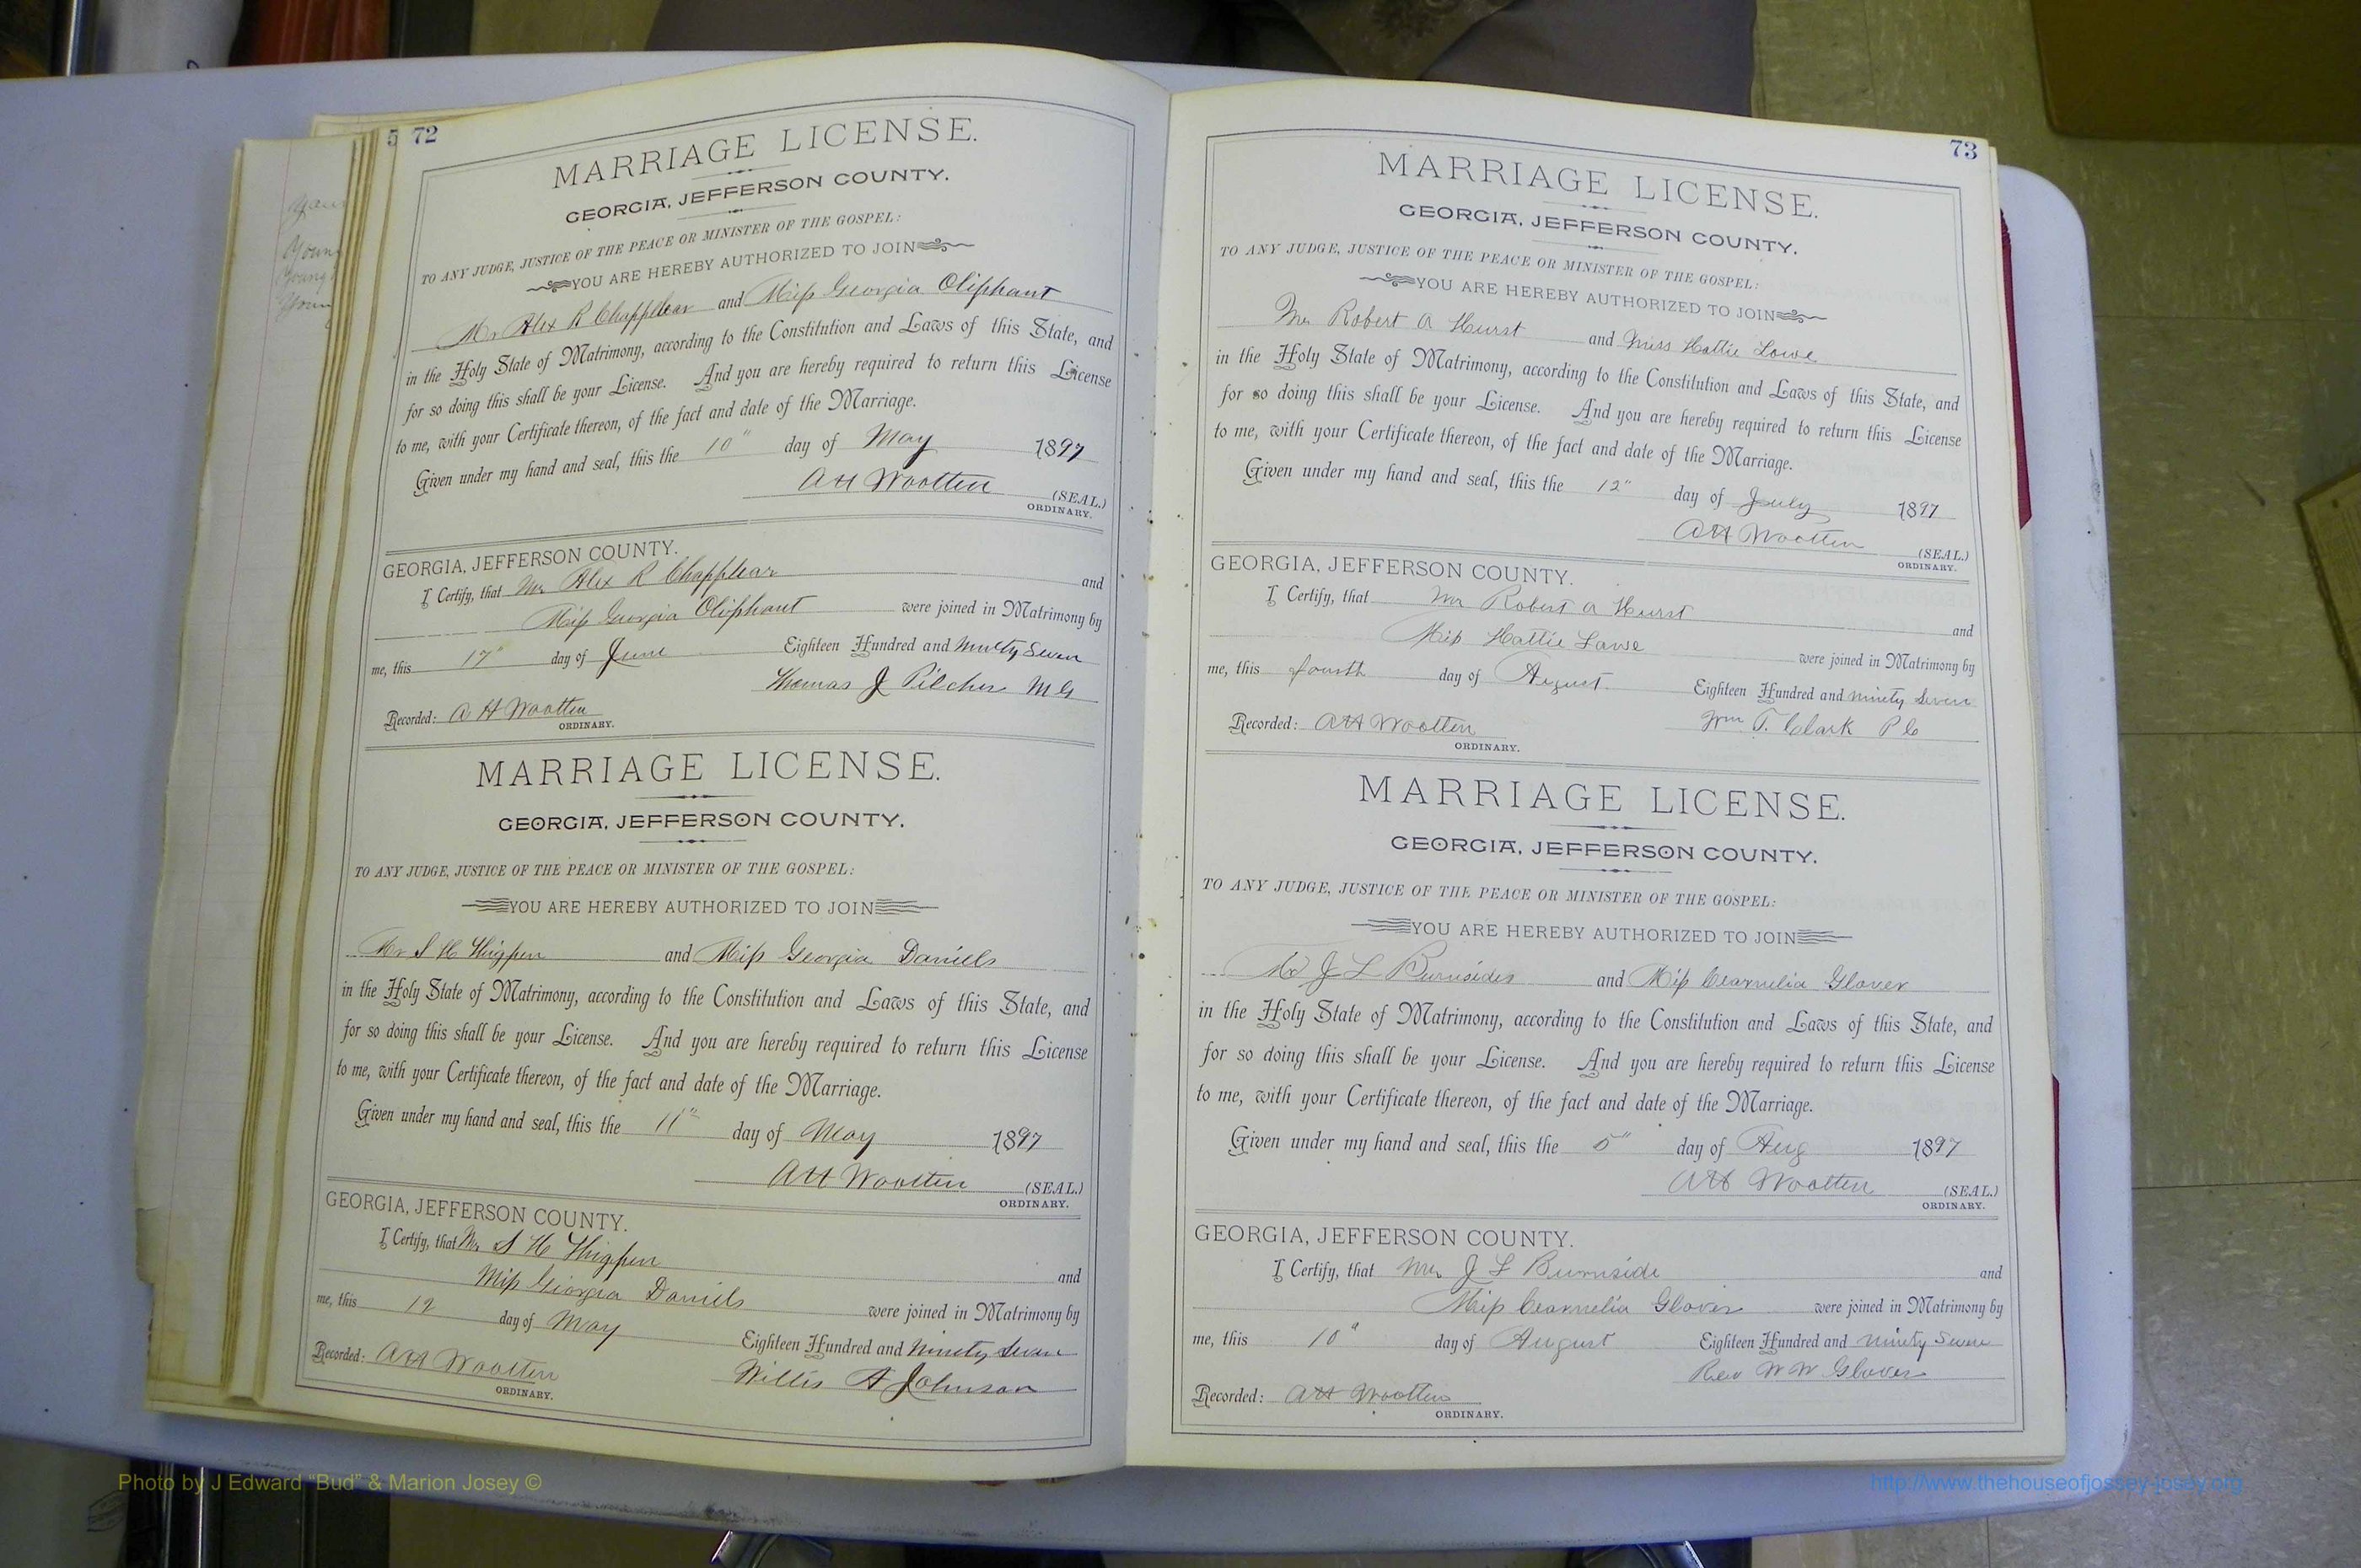 5 72
MARRIAGE LICENSE.
GEORGIA, JEFFERSON COUNTY.
TO ANY JUDGE, JUSTICE OF THE PEACE OR MINISTER OF THE GOSPEL:
YOU ARE HEREBY AUTHORIZED TO JOIN
Mr Alex R Chapplear and Miss Georgia Oliphant
in the Holy State of Matrimony, according to the Constitution and Laws of this State, and
for so doing this shall be your License. And you are hereby required to return this License
to me, with your Certificate thereon, of the fact and date of the Marriage.
Given under my hand and seal, this the 10" day of May 1897
A H Wootten (SEAL.)
ORDINARY.
GEORGIA, JEFFERSON COUNTY.
I Certify, that Mr Alex R Chapplear and
Miss Georgia Oliphant were joined in Matrimony by
me, this 17" day of June Eighteen Hundred and Ninety Seven
Thomas J Pilcher M G
Recorded: A H Wootten
ORDINARY.
MARRIAGE LICENSE.
GEORGIA, JEFFERSON COUNTY.
TO ANY JUDGE, JUSTICE OF THE PEACE OR MINISTER OF THE GOSPEL:
YOU ARE HEREBY AUTHORIZED TO JOIN
Mr S H Thigpen and Miss Georgia Daniels
in the Holy State of Matrimony, according to the Constitution and Laws of this State, and
for so doing this shall be your License. And you are hereby required to return this License
to me, with your Certificate thereon, of the fact and date of the Marriage.
Given under my hand and seal, this the 11" day of May 1897
A H Wootten (SEAL.)
ORDINARY.
GEORGIA, JEFFERSON COUNTY.
I Certify, that Mr S H Thigpen
and
Miss Georgia Daniels were joined in Matrimony by
me, this 12 day of May Eighteen Hundred and Ninety Seven
Willis A Johnson
Recorded: A H Wootten
ORDINARY.
73
MARRIAGE LICENSE.
GEORGIA, JEFFERSON COUNTY.
TO ANY JUDGE, JUSTICE OF THE PEACE OR MINISTER OF THE GOSPEL:
YOU ARE HEREBY AUTHORIZED TO JOIN
Mr Robert A Hurst and Miss Hattie Lowe
in the Holy State of Matrimony, according to the Constitution and Laws of this State, and
for so doing this shall be your License. And you are hereby required to return this License
to me, with your Certificate thereon, of the fact and date of the Marriage.
Given under my hand and seal, this the 12" day of July 1897
A H Wootten (SEAL.)
ORDINARY.
GEORGIA, JEFFERSON COUNTY.
I Certify, that Mr Robert A Hurst and
Miss Hattie Lowe were joined in Matrimony by
me, this fourth day of August Eighteen Hundred and ninety Seven
Wm T. Clark P C
Recorded: A H Wootten
ORDINARY.
MARRIAGE LICENSE.
GEORGIA, JEFFERSON COUNTY.
TO ANY JUDGE, JUSTICE OF THE PEACE OR MINISTER OF THE GOSPEL:
YOU ARE HEREBY AUTHORIZED TO JOIN
Mr J L Burnsides and Miss Cearnelia Glover
in the Holy State of Matrimony, according to the Constitution and Laws of this State, and
for so doing this shall be your License. And you are hereby required to return this License
to me, with your Certificate thereon, of the fact and date of the Marriage.
Given under my hand and seal, this the 5" day of Aug 1897
A H Wootten (SEAL.)
ORDINARY.
GEORGIA, JEFFERSON COUNTY.
I Certify, that Mr J L Burnside and
Miss Cearnelia Glover were joined in Matrimony by
me, this 10" day of August Eighteen Hundred and ninety Seven
Rev W W Glover
Recorded: A H Wootten
ORDINARY.
Photo by J Edward “Bud” & Marion Josey ©
http://www.thehouseofjossey-josey.org